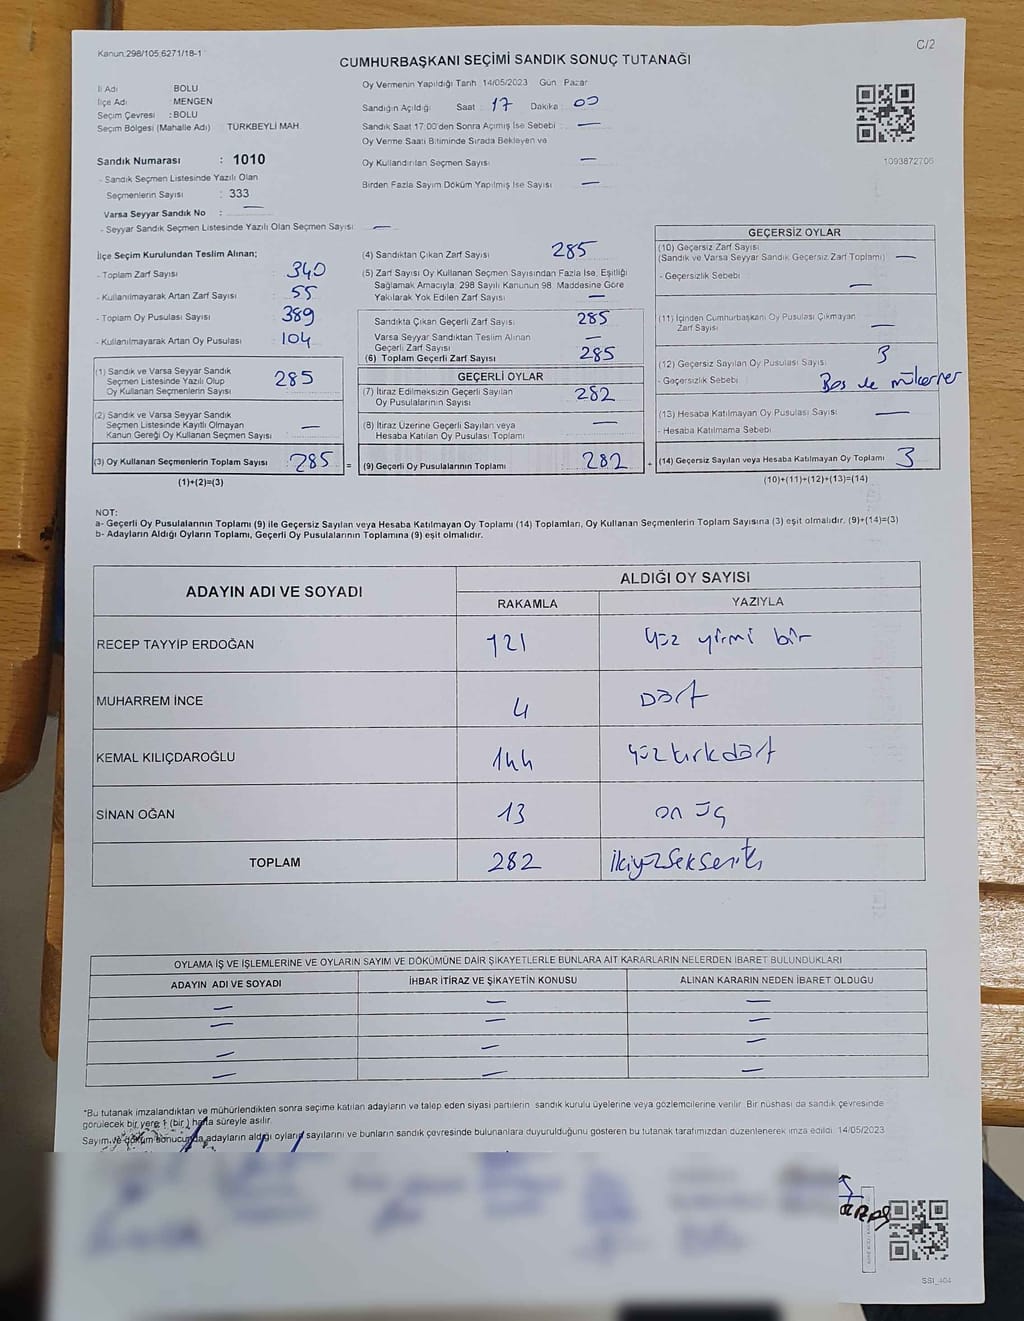 Kanun.298/105,6271/18-1
C/2
CUMHURBAŞKANI SEÇİMİ SANDIK SONUÇ TUTANAĞI
İl Adı BOLU
İlçe Adı : MENGEN
Seçim Çevresi : BOLU
Seçim Bölgesi (Mahalle Adı) TÜRKBEYLİ MAH.
Oy Vermenin Yapıldığı Tarih 14/05/2023 Gün : Pazar
Sandığın Açıldığı Saat : 17 Dakika : 00
Sandık Saat 17:00'den Sonra Açılmış İse Sebebi : —
Oy Verme Saati Bitiminde Sırada Bekleyen ve
Oy Kullandırılan Seçmen Sayısı —
Birden Fazla Sayım Döküm Yapılmış İse Sayısı —
1093872706
Sandık Numarası : 1010
- Sandık Seçmen Listesinde Yazılı Olan
Seçmenlerin Sayısı : 333
Varsa Seyyar Sandık No : —
- Seyyar Sandık Seçmen Listesinde Yazılı Olan Seçmen Sayısı : —
İlçe Seçim Kurulundan Teslim Alınan;
- Toplam Zarf Sayısı 340
- Kullanılmayarak Artan Zarf Sayısı 55
- Toplam Oy Pusulası Sayısı 389
- Kullanılmayarak Artan Oy Pusulası 104
(1) Sandık ve Varsa Seyyar Sandık
Seçmen Listesinde Yazılı Olup
Oy Kullanan Seçmenlerin Sayısı 285
(2) Sandık ve Varsa Seyyar Sandık
Seçmen Listesinde Kayıtlı Olmayan
Kanun Gereği Oy Kullanan Seçmen Sayısı —
(3) Oy Kullanan Seçmenlerin Toplam Sayısı 285 =
(1)+(2)=(3)
(4) Sandıktan Çıkan Zarf Sayısı 285
(5) Zarf Sayısı Oy Kullanan Seçmen Sayısından Fazla İse, Eşitliği
Sağlamak Amacıyla, 298 Sayılı Kanunun 98. Maddesine Göre
Yakılarak Yok Edilen Zarf Sayısı —
Sandıkta Çıkan Geçerli Zarf Sayısı 285
Varsa Seyyar Sandıktan Teslim Alınan
Geçerli Zarf Sayısı —
(6) Toplam Geçerli Zarf Sayısı 285
GEÇERLİ OYLAR
(7) İtiraz Edilmeksizin Geçerli Sayılan
Oy Pusulalarının Sayısı 282
(8) İtiraz Üzerine Geçerli Sayılan veya
Hesaba Katılan Oy Pusulası Toplamı —
(9) Geçerli Oy Pusulalarının Toplamı 282 +
GEÇERSİZ OYLAR
(10) Geçersiz Zarf Sayısı
(Sandık ve Varsa Seyyar Sandık Geçersiz Zarf Toplamı) —
- Geçersizlik Sebebi —
(11) İçinden Cumhurbaşkanı Oy Pusulası Çıkmayan
Zarf Sayısı —
(12) Geçersiz Sayılan Oy Pusulası Sayısı 3
- Geçersizlik Sebebi Boş ve mükerrer
(13) Hesaba Katılmayan Oy Pusulası Sayısı —
- Hesaba Katılmama Sebebi
(14) Geçersiz Sayılan veya Hesaba Katılmayan Oy Toplamı 3
(10)+(11)+(12)+(13)=(14)
NOT:
a- Geçerli Oy Pusulalarının Toplamı (9) ile Geçersiz Sayılan veya Hesaba Katılmayan Oy Toplamı (14) Toplamları, Oy Kullanan Seçmenlerin Toplam Sayısına (3) eşit olmalıdır. (9)+(14)=(3)
b- Adayların Aldığı Oyların Toplamı, Geçerli Oy Pusulalarının Toplamına (9) eşit olmalıdır.
ADAYIN ADI VE SOYADI ALDIĞI OY SAYISI
RAKAMLA YAZIYLA
RECEP TAYYİP ERDOĞAN 121 yüz yirmi bir
MUHARREM İNCE 4 Dört
KEMAL KILIÇDAROĞLU 144 yüzkırkdört
SİNAN OĞAN 13 on üç
TOPLAM 282 ikiyüzSekseniki
OYLAMA İŞ VE İŞLEMLERİNE VE OYLARIN SAYIM VE DÖKÜMÜNE DAİR ŞİKAYETLERLE BUNLARA AİT KARARLARIN NELERDEN İBARET BULUNDUKLARI
ADAYIN ADI VE SOYADI İHBAR İTİRAZ VE ŞİKAYETİN KONUSU ALINAN KARARIN NEDEN İBARET OLDUĞU
— — —
— — —
— — —
— — —
*Bu tutanak imzalandıktan ve mühürlendikten sonra seçime katılan adayların ve talep eden siyasi partilerin sandık kurulu üyelerine veya gözlemcilerine verilir. Bir nüshası da sandık çevresinde
görülecek bir yere 1 (bir) hafta süreyle asılır.
Sayım ve döküm sonucunda adayların aldığı oyların sayılarını ve bunların sandık çevresinde bulunanlara duyurulduğunu gösteren bu tutanak tarafımızdan düzenlenerek imza edildi. 14/05/2023
SSI_404